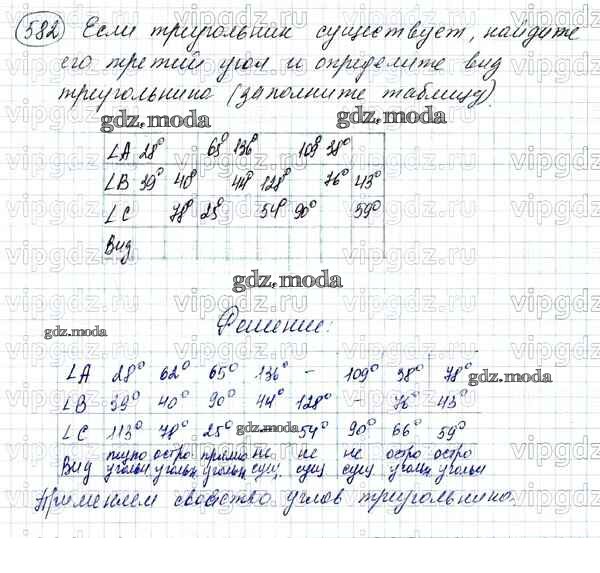 582 Если треугольник существует, найдите
его третий угол и определите вид
треугольника (заполните таблицу).
gdz.moda gdz.moda
∠A 28° 65° 136° 109° 38°
∠B 39° 40° 44° 128° 76° 43°
∠C 78° 25° 54° 90° 59°
Вид
gdz.moda
Решение:
gdz.moda
∠A 28° 62° 65° 136° – 109° 38° 78°
gdz.moda
∠B 39° 40° 90° 44° 128° – 76° 43°
∠C 113° 78° 25° 54° 90° 66° 59°
gdz.moda
Вид тупо остро прямо не не не остро остро
угольн угольн. угольн. сущ. сущ сущ угольн. угольн
Применяем свойство углов треугольника.
vipgdz.ru